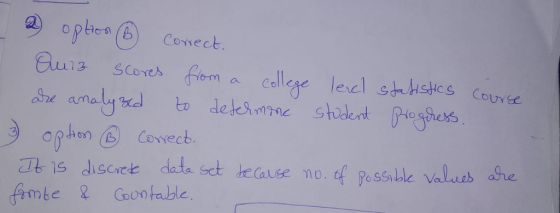 2) option (B) correct.
Quiz scores from a college level statistics course
are analyzed to determine student progress.
3) option (B) correct.
It is discrete data set because no. of possible values are
finite & Countable.